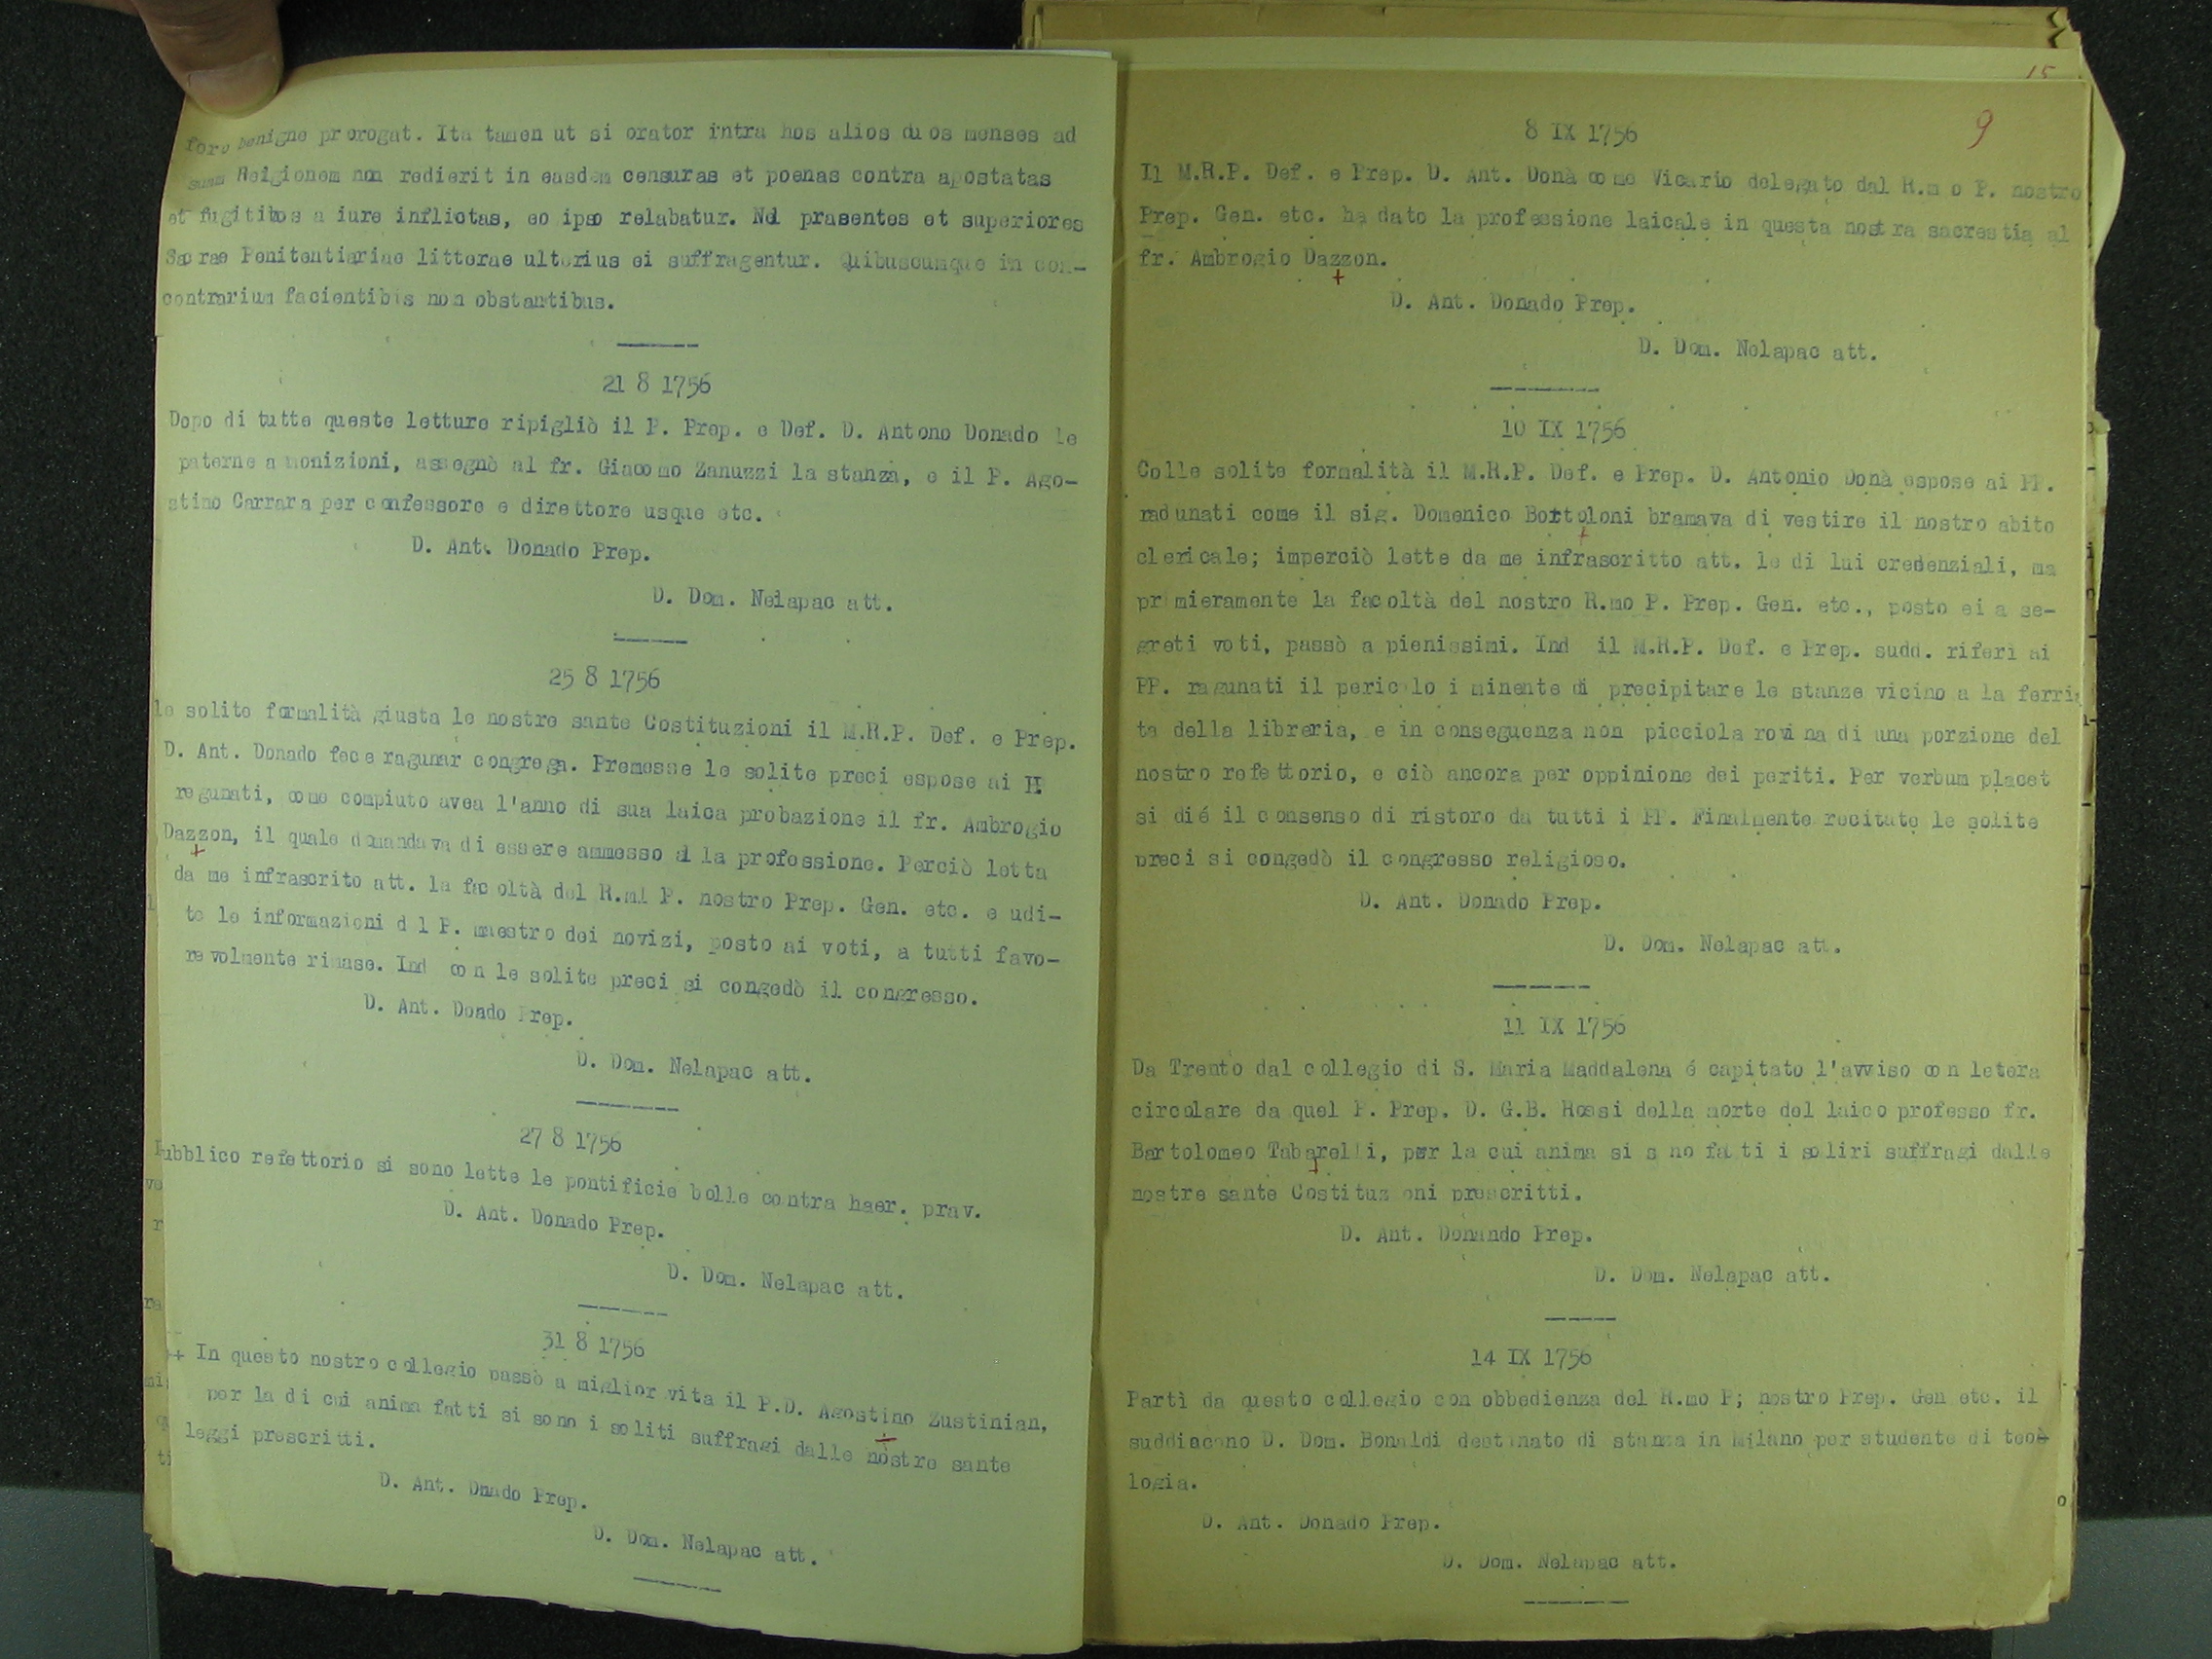 foro benigne prorogat. Ita tamen ut si orator intra hos alios duos menses ad
suam Reigionem non redierit in easdem censuras et poenas contra apostatas
et fugitivos a iure inflictas, eo ipso relabatur. Nd prasentes et superiores
Sacrae Penitentiariae litterae ulterius ei suffragentur. Quibuscumque in con-
contrarium facientibus non obstantibus.
21 8 1756
Dopo di tutte queste letture ripigliò il P. Prep. e Def. D. Antono Donado le
paterne amonizioni, assegnò al fr. Giacomo Zanuzzi la stanza, e il P. Ago-
stino Carrara per confessore e direttore usque etc.
D. Ant. Donado Prep.
D. Dom. Nelapac att.
25 8 1756
le solite formalità giusta le nostre sante Costituzioni il M.R.P. Def. e Prep.
D. Ant. Donado fece ragunar congrega. Premesse le solite preci espose ai PP.
regunati, come compiuto avea l'anno di sua laica probazione il fr. Ambrogio
Dazzon, il quale domandava di essere ammesso al la professione. Perciò letta
da me infrascrito att. la facoltà del R.ml P. nostro Prep. Gen. etc. e udi-
te le informazioni d l P. maestro dei novizi, posto ai voti, a tutti favo-
revolmente rimase. Ind con le solite preci si congedò il congresso.
D. Ant. Doado Prep.
D. Dom. Nelapac att.
27 8 1756
Pubblico refettorio si sono lette le pontificie bolle contra haer. prav.
D. Ant. Donado Prep.
D. Dom. Nelapac att.
31 8 1756
++ In questo nostro collegio passò a miglior vita il P.D. Agostino Zustinian,
per la di cui anima fatti si sono i soliti suffragi dalle nostre sante
leggi prescritti.
D. Ant. Dnado Prep.
D. Dom. Nelapac att.
15
9
8 IX 1756
Il M.R.P. Def. e Prep. D. Ant. Donà come Vicario delegato dal R.m o P. nostro
Prep. Gen. etc. ha dato la professione laicale in questa nostra sacrestia al
fr. Ambrogio Dazzon.
D. Ant. Donado Prep.
D. Dom. Nelapac att.
10 IX 1756
Colle solite formalità il M.R.P. Def. e Prep. D. Antonio Donà espose ai PP.
radunati come il sig. Domenico Bortoloni bramava di vestire il nostro abito
clericale; imperciò lette da me infrascritto att. le di lui credenziali, ma
primieramente la facoltà del nostro R.mo P. Prep. Gen. etc., posto ei a se-
greti voti, passò a pienissimi. Ind il M.R.P. Def. e Prep. sudd. riferì ai
PP. ragunati il pericolo iminente di precipitare le stanze vicino a la ferria
ta della libreria, e in conseguenza non picciola rovina di una porzione del
nostro refettorio, e ciò ancora per oppinione dei periti. Per verbum placet
si dié il consenso di ristoro da tutti i PP. Finalmente recitate le solite
preci si congedò il congresso religioso.
D. Ant. Donado Prep.
D. Dom. Nelapac att.
11 IX 1756
Da Trento dal collegio di S. Maria Maddalena é capitato l'avviso con letera
circolare da quel P. Prep. D. G.B. Rossi della morte del laico professo fr.
Bartolomeo Tabarelli, per la cui anima si s no fatti i soliri suffragi dalle
nostre sante Costituz oni prescritti.
D. Ant. Donando Prep.
D. Dom. Nelapac att.
14 IX 1756
Partì da questo collegio con obbedienza del R.mo P; nostro Prep. Gen etc. il
suddiacono D. Dom. Bonaldi destinato di stanza in Milano per studente di teo-
logia.
D. Ant. Donado Prep.
D. Dom. Nelapac att.